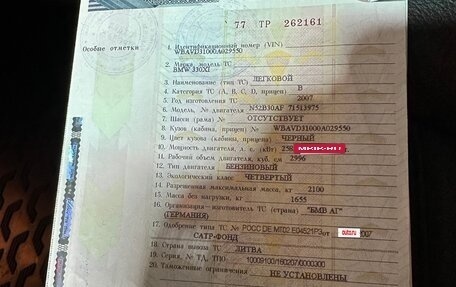 77 ТР 262161
Особые отметки
1. Идентификационный номер (VIN)
WBAVD31000A029550
2. Марка, модель ТС
BMW 330XI
3. Наименование (тип ТС) ЛЕГКОВОЙ
4. Категория ТС (А, В, С, D, прицеп) B
5. Год изготовления ТС 2007
6. Модель, № двигателя N52B30AF 71513975
7. Шасси (рама) № ОТСУТСТВУЕТ
8. Кузов (кабина, прицеп) № WBAVD31000A029550
9. Цвет кузова (кабины, прицепа) ЧЕРНЫЙ
10. Мощность двигателя, л. с. (кВт)
11. Рабочий объем двигателя, куб. см 2996
12. Тип двигателя БЕНЗИНОВЫЙ
13. Экологический класс ЧЕТВЕРТЫЙ
14. Разрешенная максимальная масса, кг 2100
15. Масса без нагрузки, кг 1655
16. Организация—изготовитель ТС (страна) "БМВ АГ"
(ГЕРМАНИЯ)
17. Одобрение типа ТС № РОСС DE.МТ02.Е04521Р3 от 007
САТР-ФОНД
18. Страна вывоза ТС ЛИТВА
19. Серия, № ТД, ТПО 10009100/160207/0000300
20. Таможенные ограничения НЕ УСТАНОВЛЕНЫ